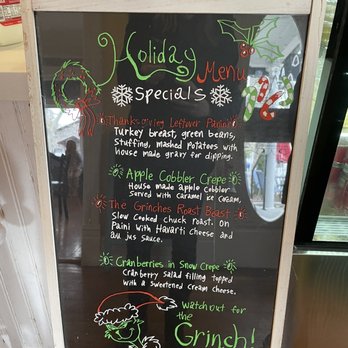 Holiday
Menu
Specials
Thanksgiving Leftover Panini
Turkey breast, green beans,
Stuffing, mashed potatoes with
house made gravy for dipping.
Apple Cobbler Crepe
House made apple cobbler
served with caramel ice cream.
The Grinches Roast Beast
Slow cooked chuck roast. on
Paini with Havarti cheese and
au jus sauce.
Cranberries in Snow Crepe
Cranberry salad filling topped
with a sweetened cream cheese.
Watch out for
the
Grinch!